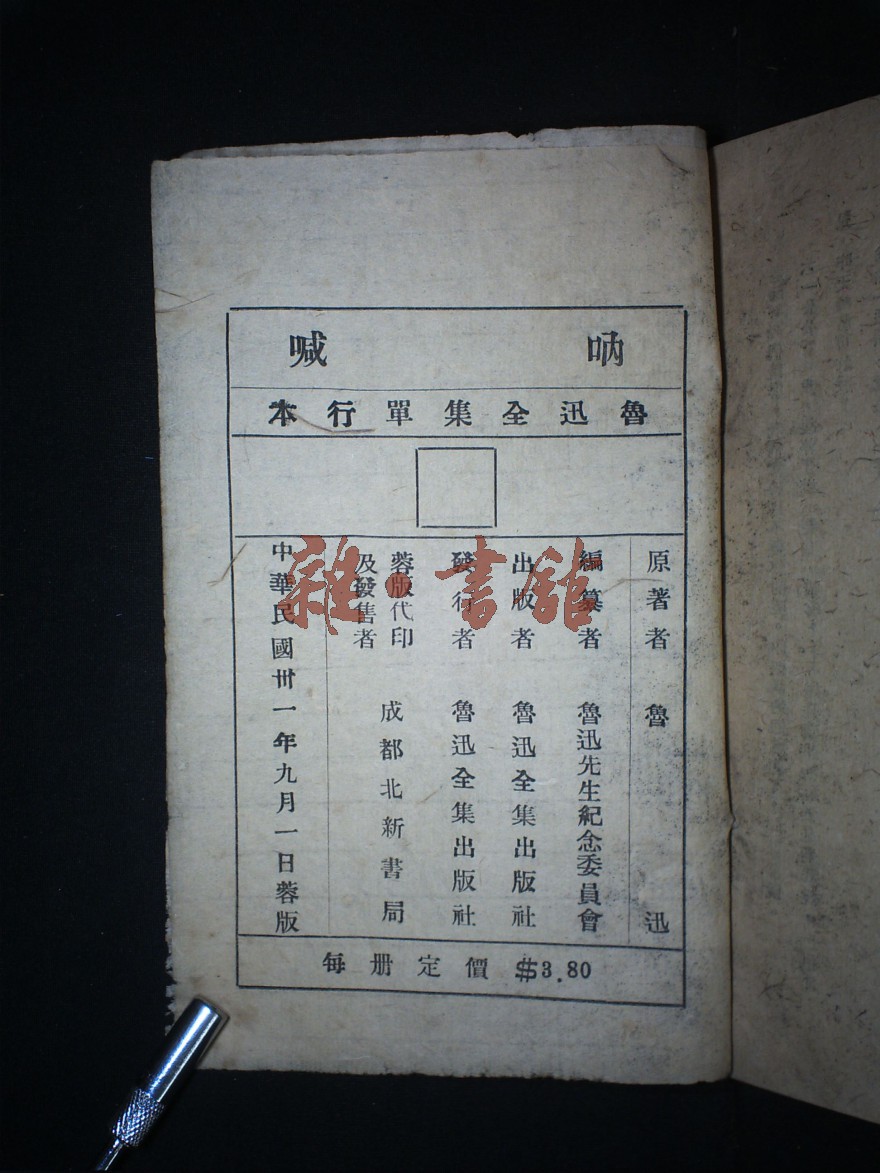 吶喊
魯迅全集單行本
原著者 魯迅
編纂者 魯迅先生紀念委員會
出版者 魯迅全集出版社
發行者 魯迅全集出版社
蓉版代印
及發售者
成都北新書局
中華民國卅一年九月一日蓉版
每册定價 $3.80
雜·書館